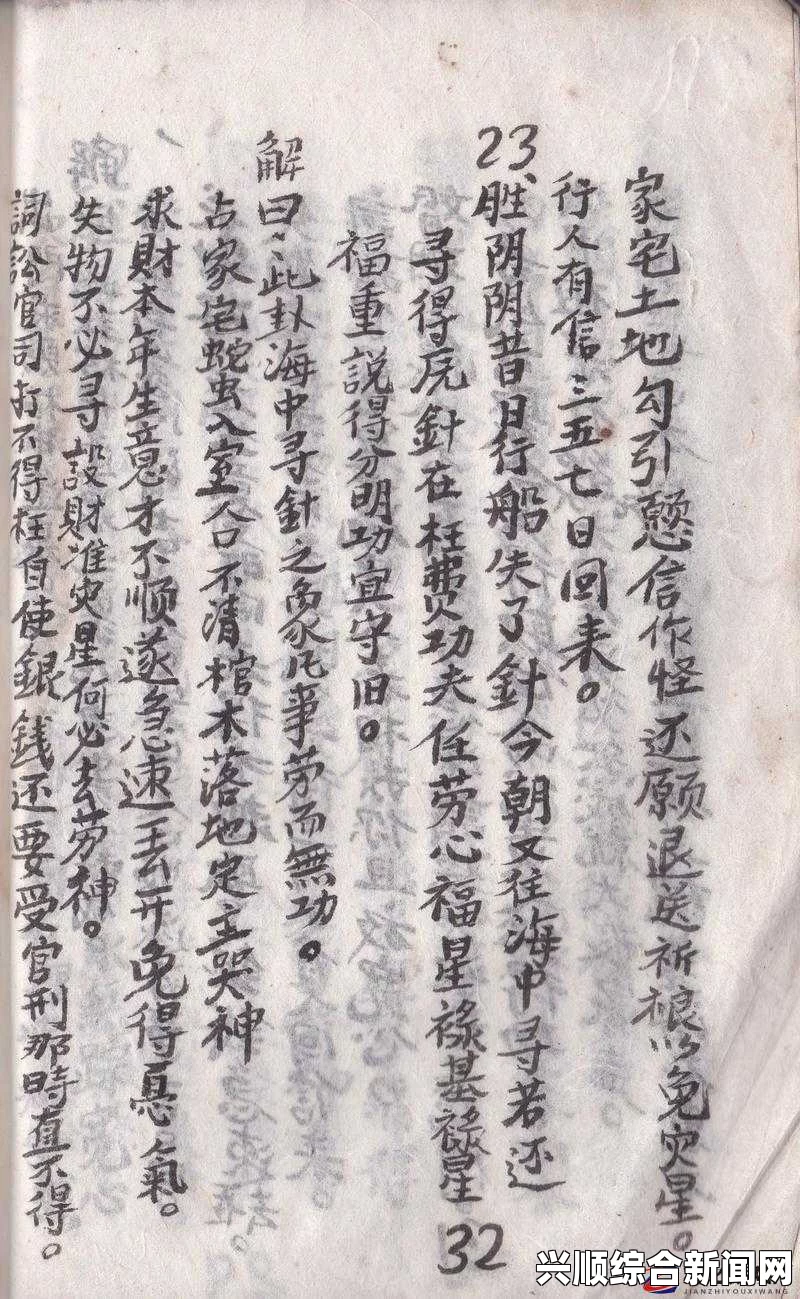 家宅土地勾引懸信作怪还愿退送祈禳以免灾星。
行人有信三五七日回来。
23、胜阴阴昔日行船失了針今朝又往海中寻若还
寻得原針在枉费功夫任劳心福星祿基祿星
福重説得分明功宜守旧。
解曰:此卦海中寻針之象凡事劳而無功。
占家宅蛇虫入室人口不清棺木落地定主哭神
求財本年生意才不顺遂急速丢开免得忧氣。
失物不必寻設財准灾星何必去劳神。
詞訟官司打不得枉自使銀錢还要受官刑那時直不得。
32
兴顺综合新闻网
JIANZHIYOUXIWANG